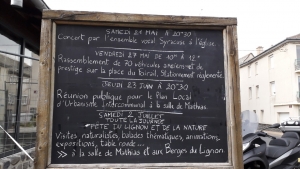 SAMEDI 21 MAI À 20H30
Concert par l'ensemble vocal Syracuse à l'église
VENDREDI 27 MAI de 10H à 12H
Rassemblement de 70 véhicules anciens et de
prestige sur la place du foirail. Stationnement réglementé.
JEUDI 23 JUIN À 20H30
Réunion publique pour le Plan Local
d'Urbanisme Intercommunal à la salle de Mathias
SAMEDI 2 JUILLET
TOUTE LA JOURNÉE
FÊTE DU LIGNON ET DE LA NATURE
Visites naturalistes, balades thématiques, animations,
expositions, table ronde...
>> à la salle de Mathias et aux Berges du Lignon